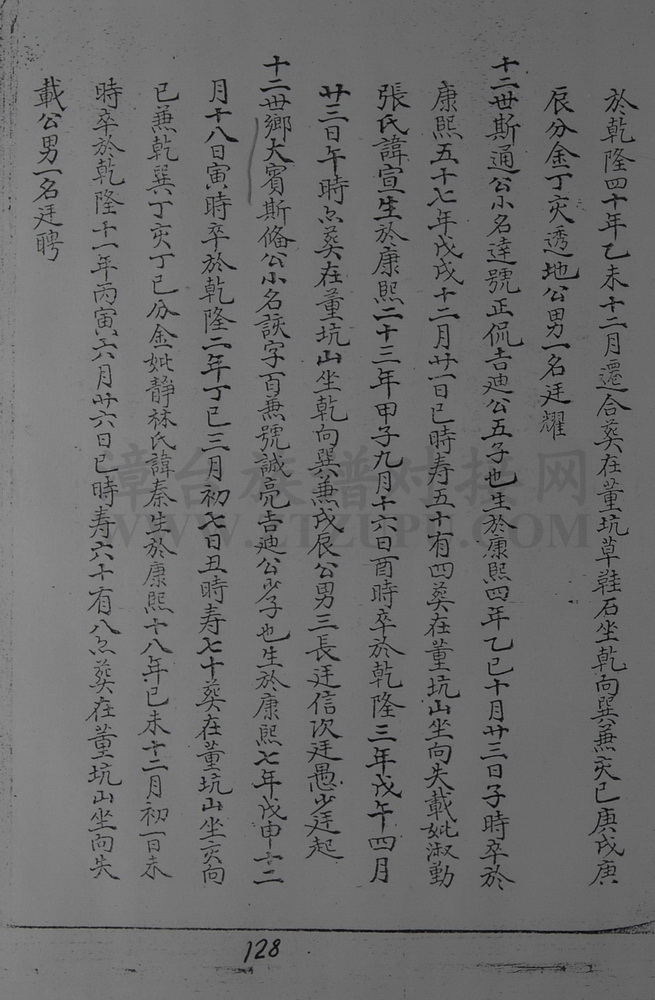 於乾隆四十年乙未十二月遷合葬在董坑草鞋石坐乾向巽兼亥巳庚戌庚
辰分金丁亥透地公男一名廷耀
十二世斯通公小名達號正侃吉迪公五子也生於康熙四年乙巳十月廿三日子時卒於
康熙五十七年戊戌十二月廿一日巳時寿五十有四葬在董坑山坐向失載妣淑勤
張氏諱宣生於康熙二十三年甲子九月十六日酉時卒於乾隆三年戊午四月
廿三日午時 葬在董坑山坐乾向巽兼戌辰公男三長廷信次廷愚少廷起
十二世鄉大賓斯俻公小名 字百兼號誠亮吉迪公少子也生於康熙七年戊申十二
月十八日寅時卒於乾隆二年丁巳三月初七日丑時寿七十葬在董坑山坐亥向
巳兼乾巽丁亥丁巳分金妣靜林氏諱秦生於康熙十八年己未十二月初一日未
時卒於乾隆十一年丙寅六月廿六日巳時寿六十有八 葬在董坑山坐向失
載公男一名廷聘
漳台族谱对接网
WWW.ZTZUPU.COM
128